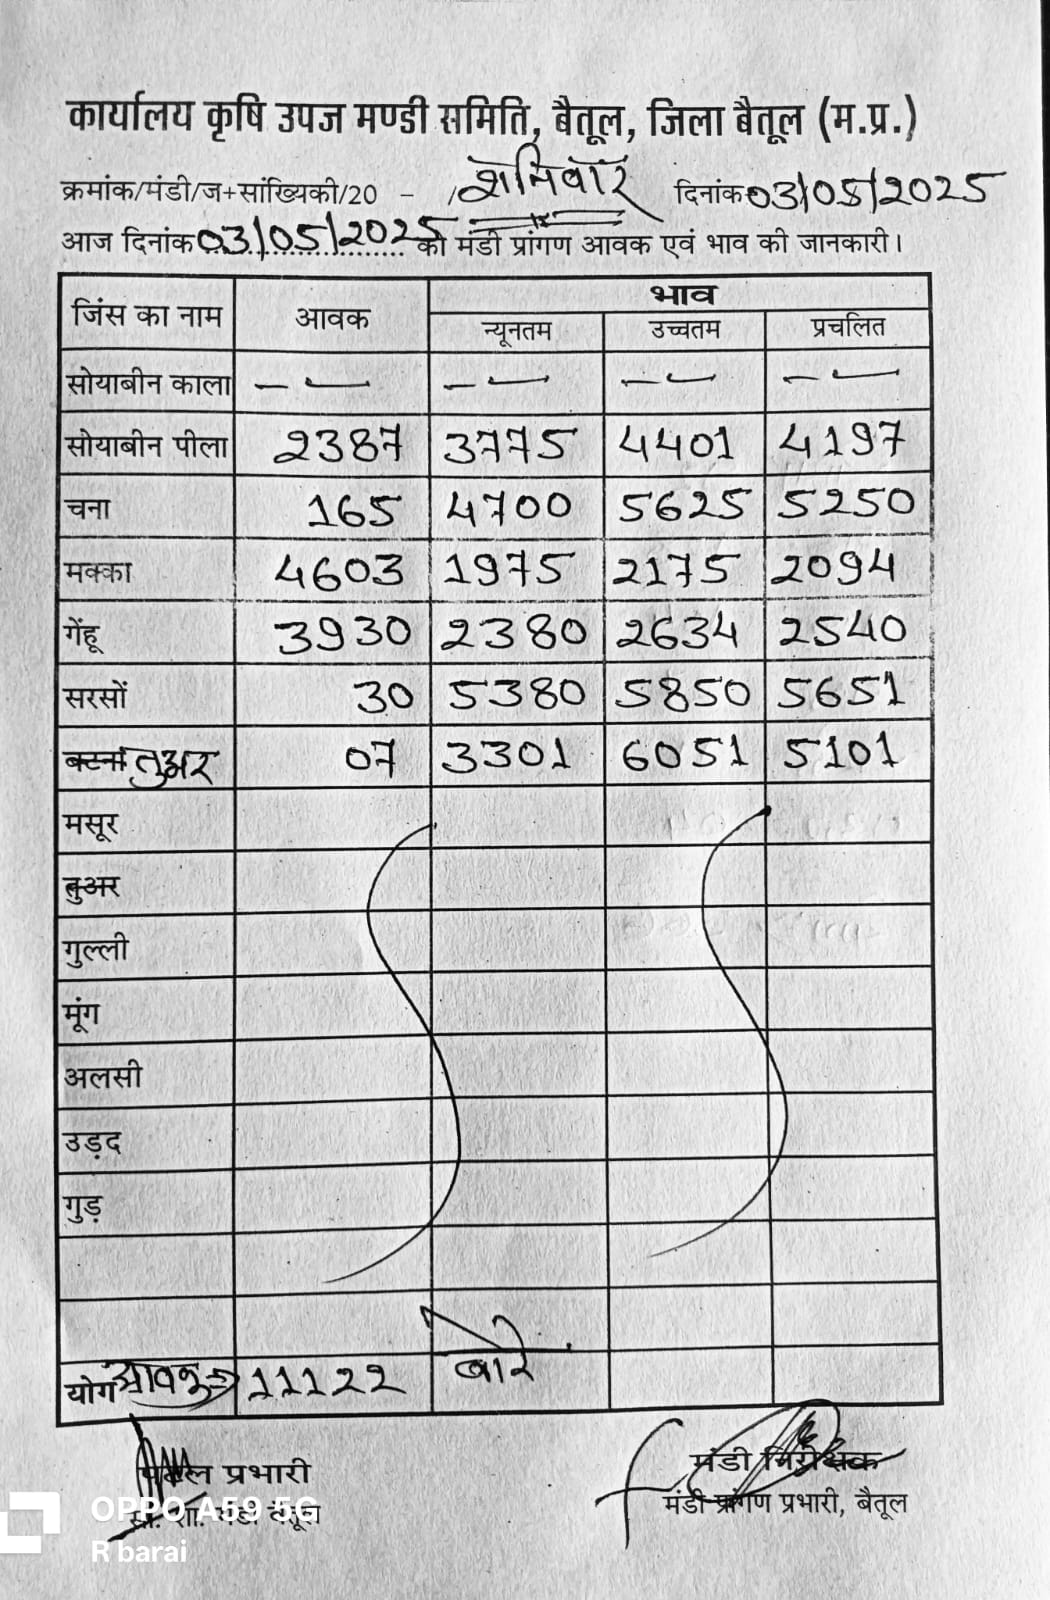 कार्यालय कृषि उपज मण्डी समिति, बैतूल, जिला बैतूल (म.प्र.)
क्रमांक/मंडी/ज+सांख्यिकी/20 - / शनिवार दिनांक 03/05/2025
आज दिनांक 03/05/2025 को मंडी प्रांगण आवक एवं भाव की जानकारी।
जिंस का नाम आवक भाव
न्यूनतम उच्चतम प्रचलित
सोयाबीन काला -- -- -- --
सोयाबीन पीला 2387 3775 4401 4197
चना 165 4700 5625 5250
मक्का 4603 1975 2175 2094
गेंहू 3930 2380 2634 2540
सरसों 30 5380 5850 5651
बटना तुअर 07 3301 6051 5101
मसूर
तुअर
गुल्ली
मूंग
अलसी
उड़द
गुड़
योग आवक 11122 बोरे
प्रभारी मंडी निरीक्षक
मंडी बैतूल मंडी प्रांगण प्रभारी, बैतूल
OPPO A59 5G
R barai